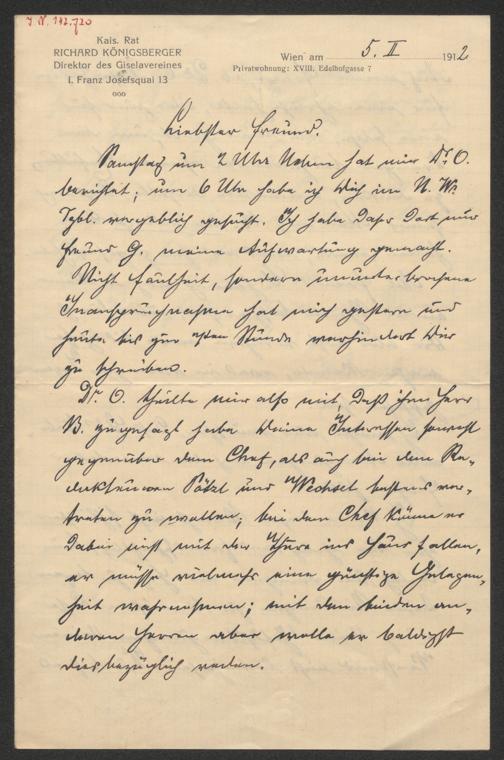 J. N. 142.720
Kais. Rat
RICHARD KÖNIGSBERGER
Direktor des Giselavereines
I. Franz Josefsquai 13
Wien am 5. II 1912
Privatwohnung: XVIII. Edelhofgasse 7
Liebster Freund.
Samstag um 2 Uhr Nchm hat mir Dr. O.
berichtet; um 6 Uhr habe ich Dich im N. W.
Tgbl. vergeblich gesucht. Ich habe dafür dort nur
Freund G. meine Aufwartung gemacht.
Nicht Faulheit, sondern ununterbrochene
Inanspruchnahme hat mich gestern und
heute bis zur Stunde verhindert Dir
zu schreiben.
Dr. O. theilte mir also mit, daß ihm Herr
B. zugesagt habe Deine Interessen sowohl
gegenüber dem Chef, als auch bei den Re-
dakteuren Pötzl und Wechsel bestens ver-
treten zu wollen; bei dem Chef könne er
dabei nicht mit der Thüre ins Haus fallen,
er müsse vielmehr eine günstige Gelegen-
heit wahrnehmen; mit den beiden an-
deren Herren aber wolle er baldigst
diesbezüglich reden.